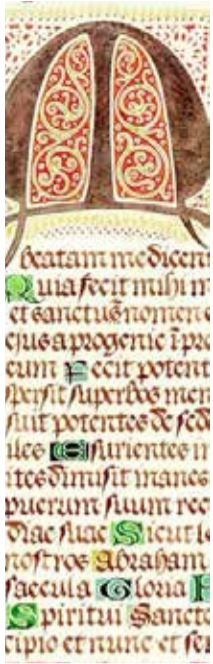 M
beatam me dicen
Quia fecit mihi m
et sanctūs nomen e
ejus a progenie ī pro
eum Fecit potent
spersit superbos men
suit potentes de sede
iles Esurientes
ites dimisit inanes
puerum suum rec
diae suae Sicut l
nostros Abraham
saecula Gloria
Spiritui Sancto
cipio et nunc et sem